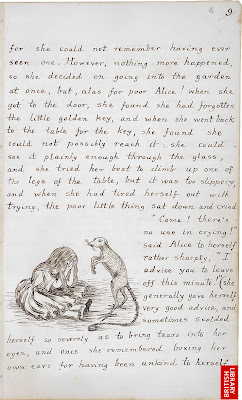 6 9
for she could not remember having ever
seen one. However, nothing more happened,
so she decided on going into the garden
at once, but, alas for poor Alice! when she
got to the door, she found she had forgotten
the little golden key, and when she went back
to the table for the key, she found she
could not possibly reach it: she could
see it plainly enough through the glass,
and she tried her best to climb up one of
the legs of the table, but it was too slippery,
and when she had tired herself out with
trying, the poor little thing sat down and cried
"Come! there's
no use in crying!"
said Alice to herself
rather sharply, "I
advise you to leave
off this minute!" (she
generally gave herself
very good advice, and
sometimes scolded
herself so severely as to bring tears into her
eyes, and once she remembered boxing her
own ears for having been unkind to herself
BRITISH
LIBRARY